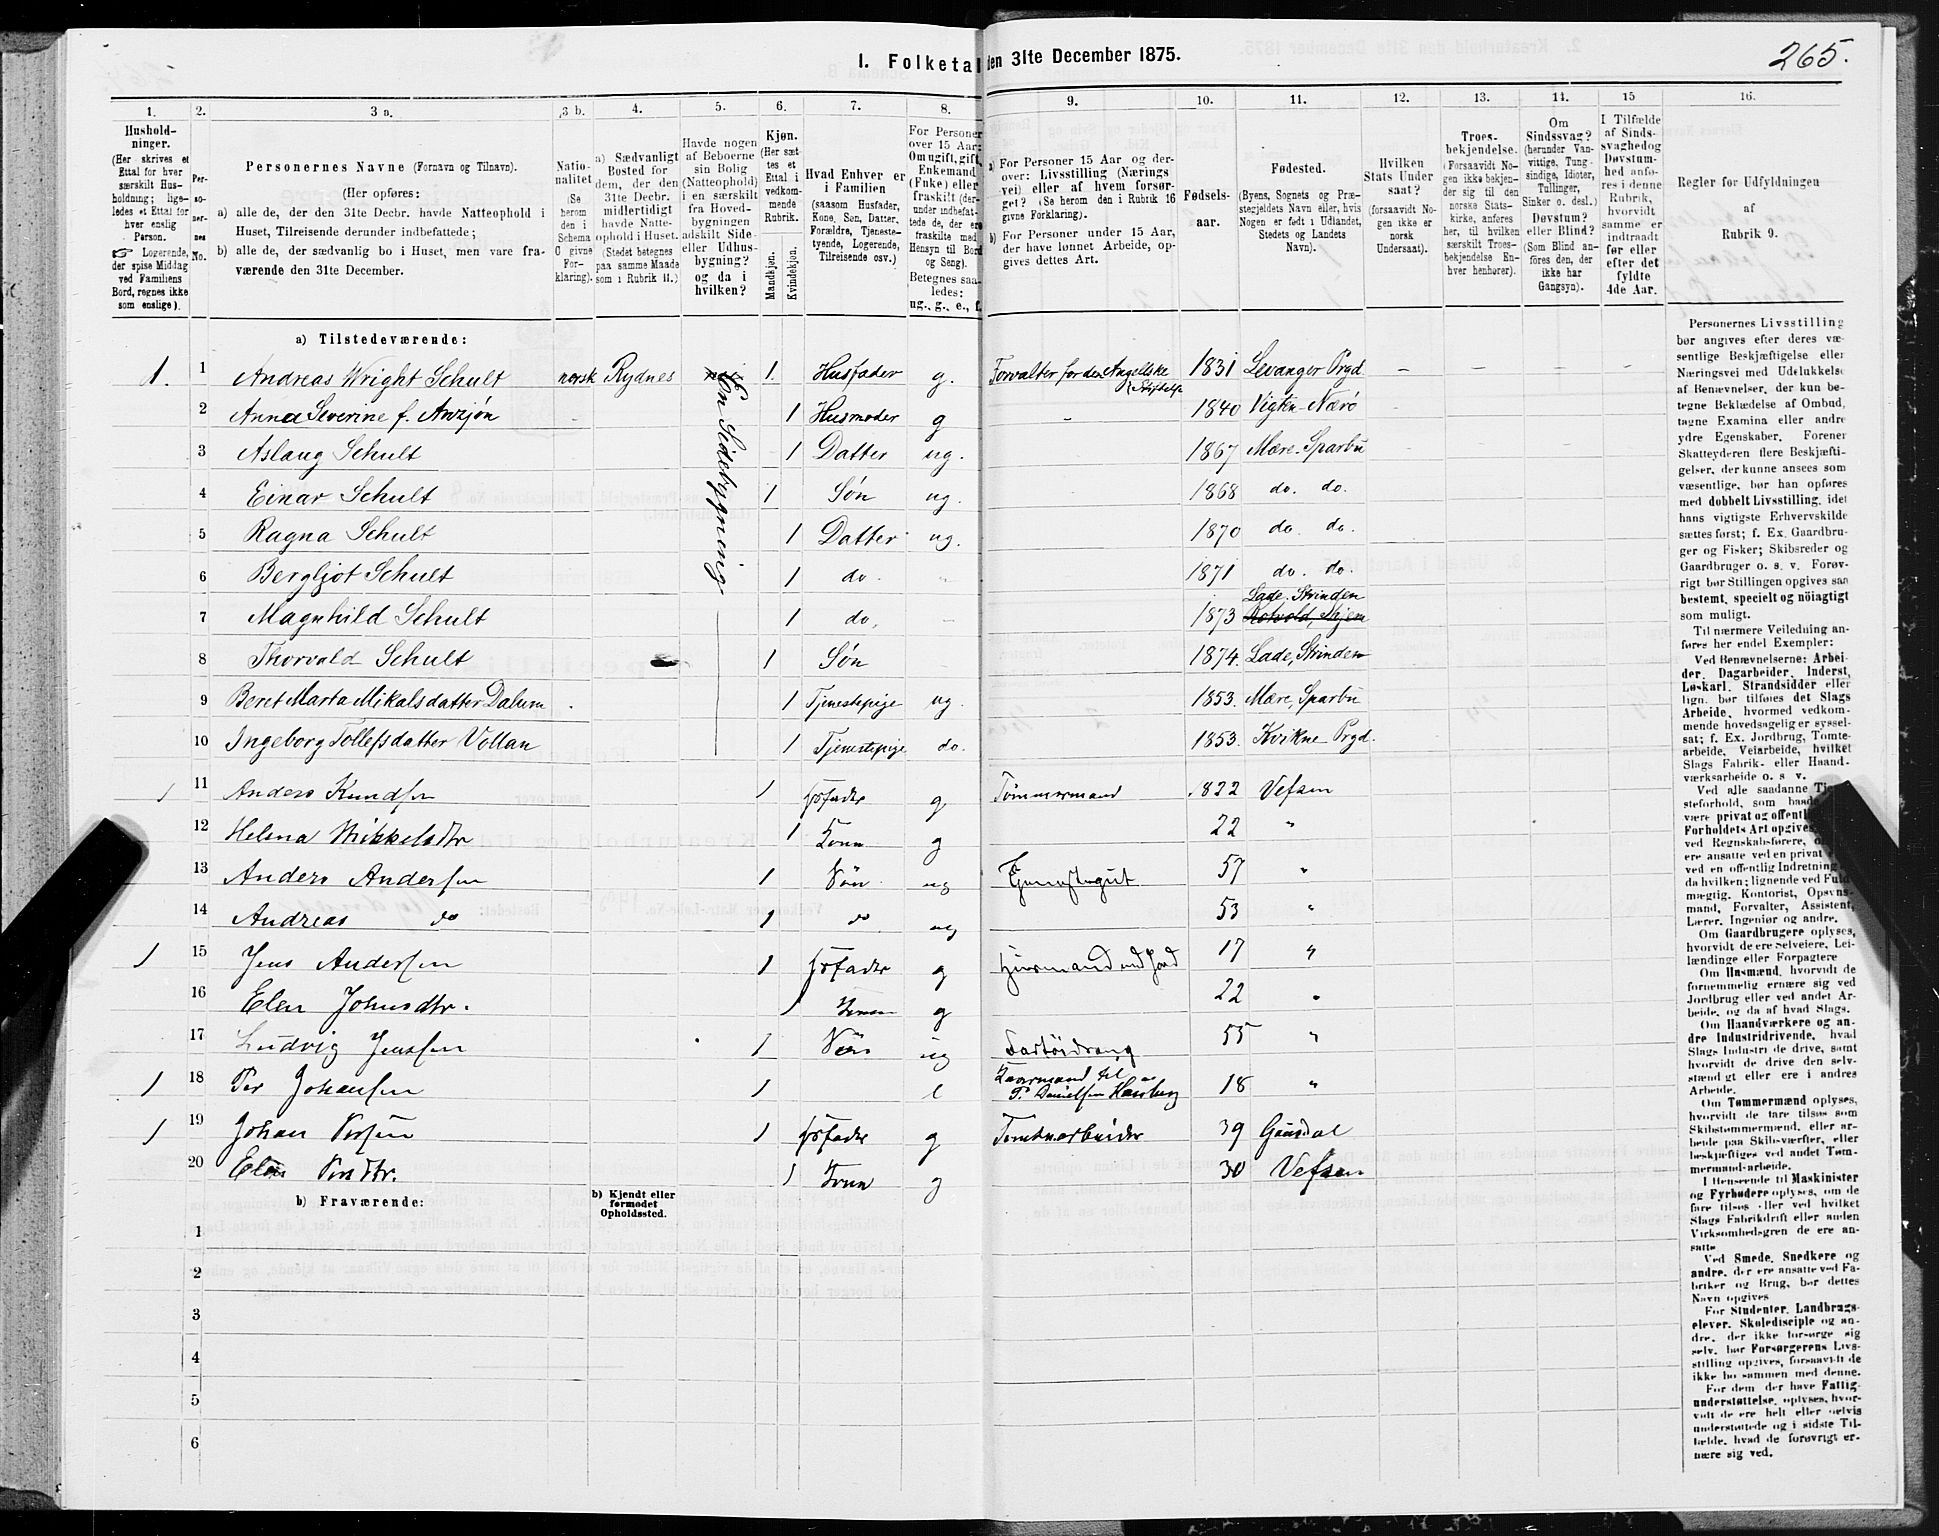 1. Folketal den 31te December 1875.
265.
1.
2.
3 a.
3 b.
4.
5.
6.
7.
8.
9.
10.
11.
12.
13.
14.
15
16.
Hushold-
ninger.
(Her skrives et
Ettal for hver
særskilt Hus-
holdning; lige-
ledes et Ettal for
hver enslig
Person.
☞ Logerende,
der spise Middag
ved Familiens
Bord, regnes ikke
som enslige).
Per-
so-
ner-
nes
No.
Personernes Navne (Fornavn og Tilnavn).
(Her opføres:
a) alle de, der den 31te Decbr. havde Natteophold i
Huset, Tilreisende derunder indbefattede;
b) alle de, der sædvanlig bo i Huset, men vare fra-
værende den 31te December.
Natio-
nalitet
(Se
herom
den i
Schema
C givne
For-
klaring).
a) Sædvanligt
Bosted for
dem, der den
31te Decbr.
midlertidigt
havde Natte-
ophold i Huset.
(Stedet betegnes
paa samme Maade
som i Rubrik 11.)
Havde nogen
af Beboerne
sin Bolig
(Natteophold)
i en særskilt
fra Hoved-
bygningen
adskilt Side-
eller Udhus-
bygning?
og da i
hvilken?
Kjøn.
(Her sæt-
tes et
Ettal i
vedkom-
mende
Rubrik.
Mandkjøn.
Kvindekjøn.
Hvad Enhver er
i Familien
(saasom Husfader,
Kone, Søn, Datter,
Forældre, Tjeneste-
tyende, Logerende,
Tilreisende osv.)
For Personer
over 15 Aar:
Om ugift, gift,
Enkemand
(Enke) eller
fraskilt (der-
under indbefat-
tede de, der ere
fraskilte med
Hensyn til Bord
og Seng).
Betegnes saa-
ledes:
ug., g., e., f.
a) For Personer 15 Aar og der-
over: Livsstilling (Nærings-
vei) eller af hvem forsør-
get? (Se herom den i Rubrik 16
givne Forklaring).
b) For Personer under 15 Aar,
der have lønnet Arbeide, op-
gives dettes Art.
Fødsels-
aar.
Fødested.
(Byens, Sognets og Præ-
stegjeldets Navn eller, hvis
Nogen er født i Udlandet,
Stedets og Landets
Navn).
Hvilken
Stats Under-
saat?
(forsaavidt No-
gen ikke er
norsk
Undersaat).
Troes-
bekjendelse.
(Forsaavidt No-
gen ikke bekjen-
der sig til den
norske Stats-
kirke, anføres
her, til hvilken
særskilt Troes-
bekjendelse En-
hver henhører).
Om
Sindssvag?
(herunder Van-
vittige, Tung-
sindige, Idioter,
Tullinger,
Sinker o. desl.)
Døvstum?
eller Blind?
(Som Blind an-
føres den, der
ikke har
Gangsyn).
I Tilfælde
af Sinds-
svaghed og
Døvstum-
hed anfø-
res i denne
Rubrik,
hvorvidt
samme er
indtraadt
før eller
efter det
fyldte
4de Aar.
Regler for Udfyldningen
af
Rubrik 9.
a) Tilstedeværende:
1. 1 Andreas Wright Schult norsk Rydnes En Sidebygning 1. Husfader g. Forvalter for den Angelske Stiftelse 1831 Levanger Prgd - - - -
2 Anna Severine f. Anzjøn 1 Husmoder g - 1840 Vigten Nærö
3 Aslaug Schult 1 Datter ug. 1867 Mære. Sparbu
4 Einar Schult 1 Søn ug. 1868 do. do.
5 Ragna Schult 1 Datter ug. 1870 do do.
6 Bergljot Schult 1 do. 1871 do. do.
7 Magnhild Schult 1 do. 1873 Lade. Strinden
8 Thorvald Schult 1 Søn 1874. Lade, Strinden
9 Beret Marta Mikalsdatter Dalum 1 Tjenestepige ug. 1853. Mære, Sparbu
10 Ingeborg Tollefsdatter Vollan 1 Tjenestepige do. 1853. Kvikne Prgd.
1 11 Anders Knudsen 1 Hsfader g Tømmermand 1822 Vefsen
12 Helena Mikkelsdtr 1 Kone g 22 "
13 Anders Andersen 1 Søn ug Tjenestegut 57 "
14 Andreas do 1 do ug 53 "
1 15 Jens Andersen 1 Hsfader g Huusmand med Jord 17 "
16 Elen Johnsdtr. 1 Kone g 22 "
17 Ludvig Jenssen 1 Søn ug 55 "
1 18 Per Johansen 1 til P. Danielsen 18 "
1 19 Johan Persen 1 Hsfader g Tomtearbeider 39 Gausdal
20 Elen Persdtr. 1 Kone g 30 Vefsen
b) Fraværende:
b) Kjendt eller
formodet
Opholdssted.
1
2
3
4
5
6
Personernes Livsstilling
bør angives efter deres væ-
sentlige Beskjæftigelse eller
Næringsvei med Udelukkelse
af Benævnelser, der kun be-
tegne Beklædelse af Ombud,
tagne Examina eller andre
ydre Egenskaber. Forener
Skatteyderen flere Beskjæfti-
gelser, der kunne ansees som
væsentlige, bør han opføres
med dobbelt Livsstilling, idet
hans vigtigste Erhvervskilde
sættes først; f. Ex. Gaardbru-
ger og Fisker; Skibsreder og
Gaardbruger o. s. v. Forøv-
rigt bør Stillingen opgives saa
bestemt, specielt og nöiagtigt
som muligt.
Til nærmere Veiledning an-
føres her endel Exempler:
Ved Benævnelserne: Arbei-
der, Dagarbeider, Inderst,
Løskarl, Strandsidder eller
lign. bør tilføies det Slags
Arbeide, hvormed vedkom-
mende hovedsagelig er syssel-
sat; f. Ex. Jordbrug, Tomte-
arbeide, Veiarbeide, hvilket
Slags Fabrik- eller Haand-
værksarbeide o. s. v.
Ved alle saadanne
steforhold, som
være privat og offentl
Forholdets Art opgives
ved Regnskabsførere,
ere ansatte ved en privat
en offentlig Indretning
da hvilken; lignende ved Fuld-
mægtig, Kontorist, Opsyns-
mand, Forvalter, Assistent,
Lærer, Ingeniør og andre.
Om Gaardbrugere oplyses,
hvorvidt de ere Selveiere, Lei-
lændinge eller Forpagtere
Om Husmænd, hvorvidt de
fornemmelig ernære sig ved
Jordbrug eller ved andet Ar-
beide, og da af hvad Slags.
Om Haandværkere og an-
dre Industridrivende, hvad
Slags Industri de drive, samt
hvorvidt de drive den selv-
stændigt eller ere i andres
Arbeide.
Om Tømmermænd oplyses,
hvorvidt de fare tilsøs som
Skibstømmermænd, eller ar-
beide paa Skibsværfter, eller
beskjæftiges ved andet Tøm-
mermand-arbeide.
I Henseende til Maskinister
og Fyrbødere oplyses, om de
fare tilsøs eller ved hvilket
Slags Fabrikdrift eller anden
Virksomhedsgren de ere an-
satte
Ved Smede, Snedkere og
andre, der ere ansatte ved Fa-
briker og Brug, bør dettes
Navn opgives
For Studenter, Landbrugs-
elever, Skoledisciple og an-
dre, der ikke forsørge sig
selv, bør Forsørgerens Livs-
stilling opgives, forsaavidt de
ikke bo sammen med denne.
For dem, der have Fattig-
understøttelse, oplyses, hvor-
vidt de ere helt eller delvis
understøttede og i sidste Til-
fælde, hvad de forøvrigt er-
nære sig ved.